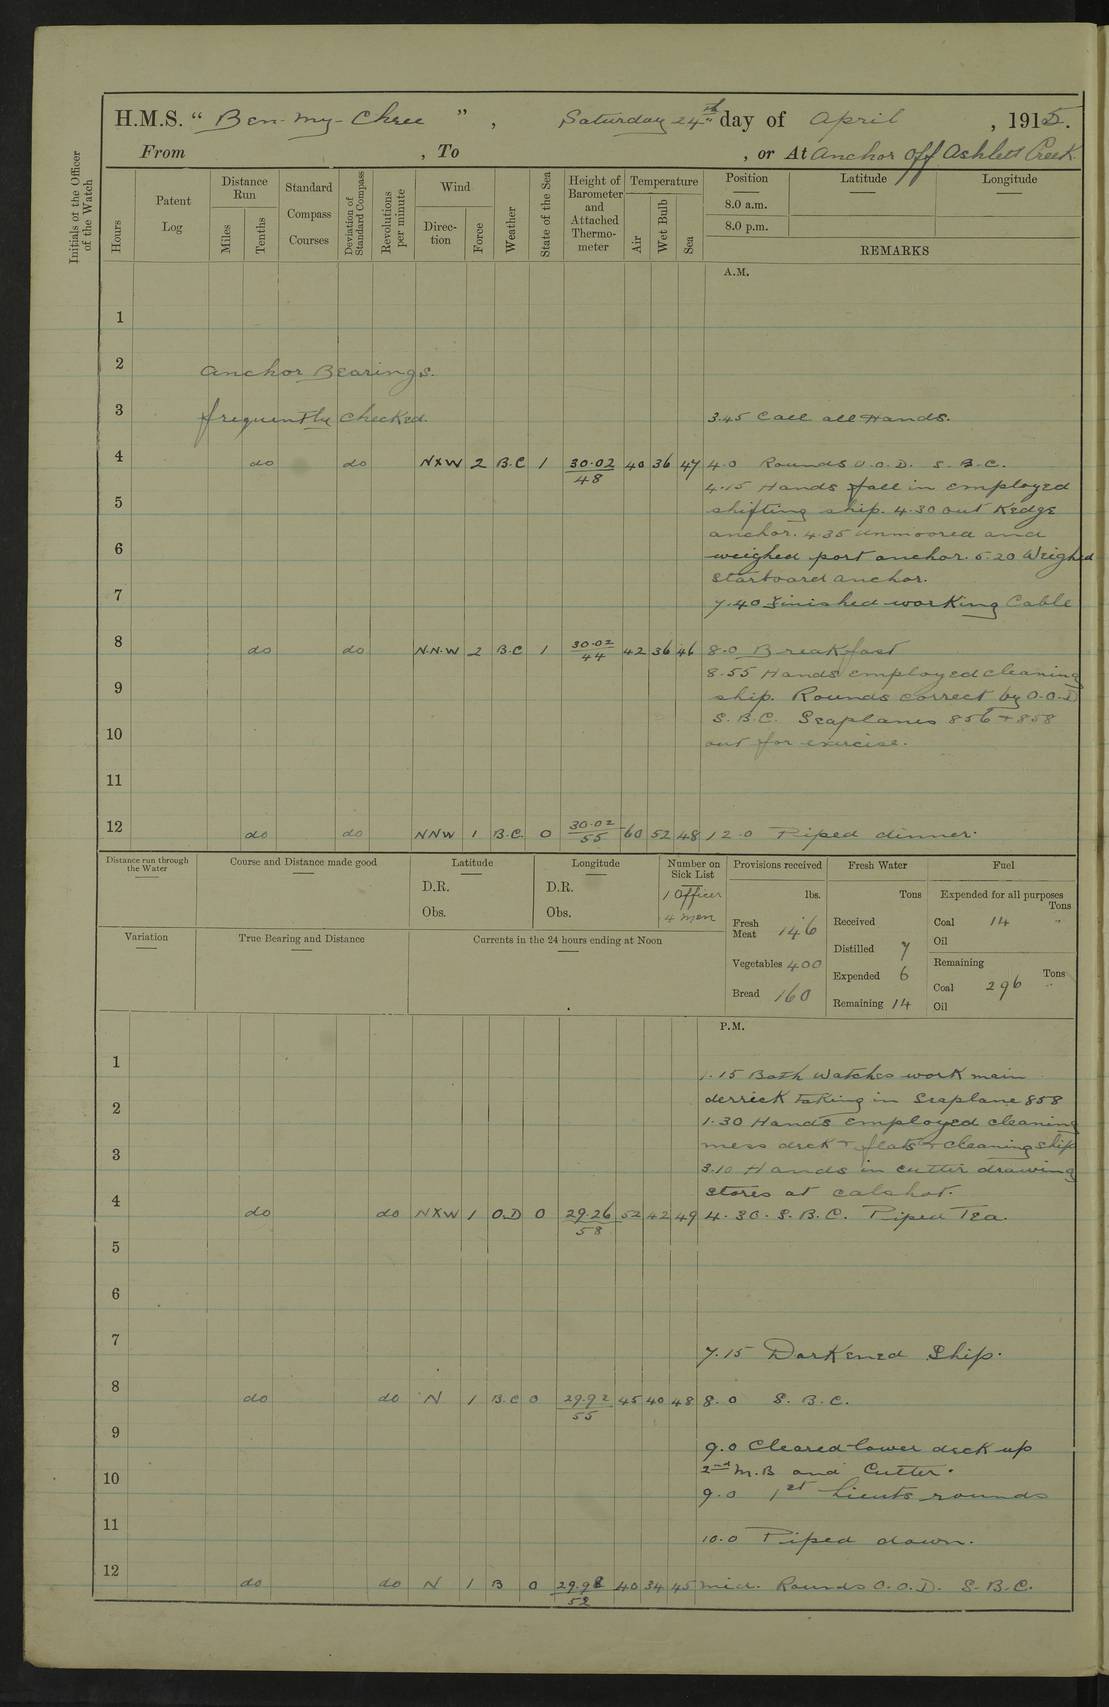 H.M.S. “ Ben-my-Chree ” , Saturday 24th day of April , 1915.
From , To , or At Anchor off Ashlett Creek.
Initials of the Officer of the Watch
Hours
Patent Log
Distance Run
Miles
Tenths
Standard Compass Courses
Deviation of Standard Compass
Revolutions per minute
Wind
Direction
Force
Weather
State of the Sea
Height of Barometer and Attached Thermometer
Temperature
Air
Wet Bulb
Sea
Position
8.0 a.m.
8.0 p.m.
Latitude
Longitude
REMARKS
A.M.
1
2 Anchor Bearings.
3 frequently checked. 3.45 Call all Hands.
4 do do NXW 2 B.C 1 30.02/48 40 36 47 4.0 Rounds O.O.D. S.B.C.
4.15 Hands fall in employed
5 shifting ship. 4.30 out Kedge
anchor. 4.35 unmoored and
6 weighed port anchor. 5.20 Weighed
starboard anchor.
7 7.40 Finished working Cable
8 do do N.N.W 2 B.C 1 30.02/44 42 36 46 8.0 Breakfast
8.55 Hands employed cleaning
9 ship. Rounds correct by O.O.D
S.B.C. Seaplanes 856 + 858
10 out for exercise.
11
12 do do NNW 1 B.C. 0 30.02/55 60 52 48 12.0 Piped dinner.
Distance run through the Water
Course and Distance made good
Latitude
D.R.
Obs.
Longitude
D.R.
Obs.
Number on Sick List
1 Officer
4 men
Provisions received
lbs.
Fresh Meat 146
Vegetables 400
Bread 160
Fresh Water
Tons
Received
Distilled 7
Expended 6
Remaining 14
Fuel
Expended for all purposes
Tons
Coal 14 "
Oil
Remaining
Tons
Coal 296 "
Oil
Variation
True Bearing and Distance
Currents in the 24 hours ending at Noon
P.M.
1 1.15 Both Watches work main
derrick taking in Seaplane 858
2 1.30 Hands employed cleaning
mess deck + flats + cleaning ship
3 3.10 Hands in cutter drawing
4 stores at calshot.
do do NXW 1 O.D 0 29.26/58 52 42 49 4.30. S.B.C. Piped Tea.
5
6
7 7.15 Darkened Ship.
8 do do N 1 B.C 0 29.92/55 45 40 48 8.0 S.B.C.
9 9.0 Cleared lower deck up
10 2nd M.B and Cutter.
9.0 1st Lieuts rounds
11 10.0 Piped down.
12 do do N 1 B 0 29.98/52 40 34 45 mid. Rounds O.O.D. S.B.C.